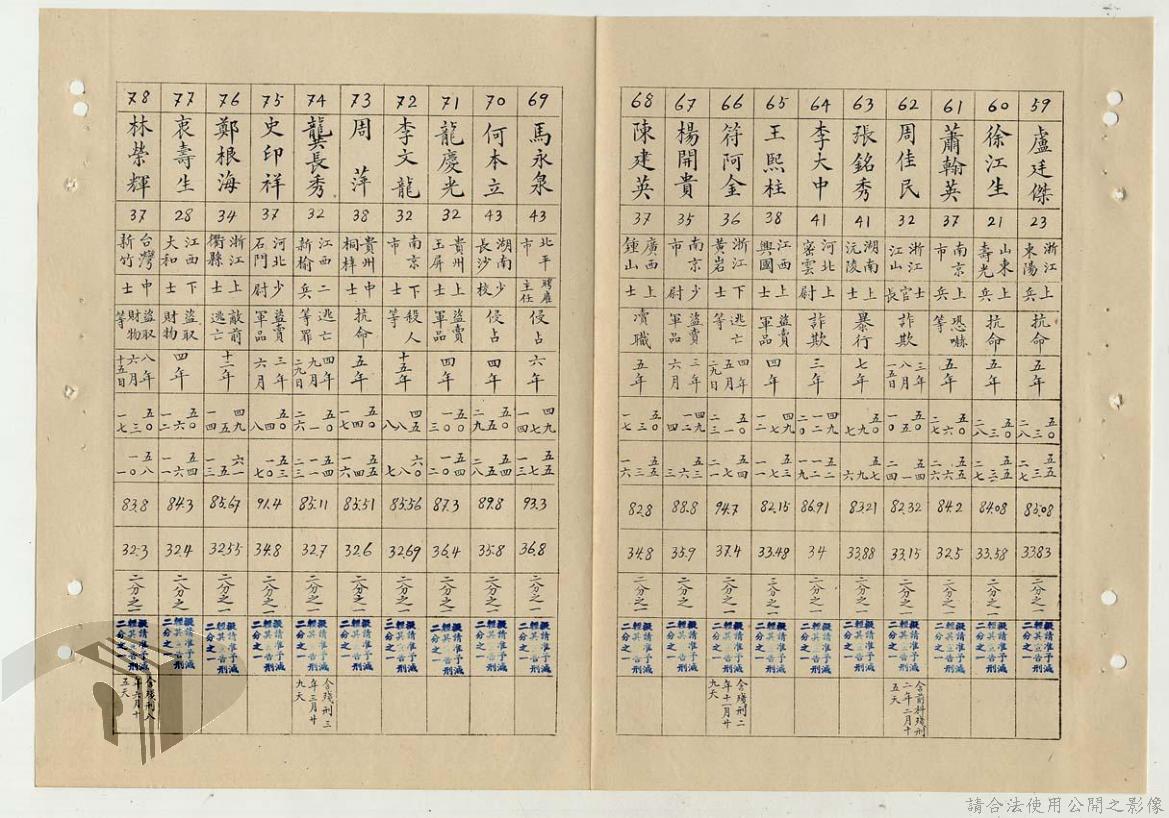 59 盧廷傑 23 浙江東陽 上兵 抗命 五年 五〇 三 二八 五五 三 二七 83.08 33.83 二分之一 擬請准予減輕其宣告刑二分之一
60 徐江生 21 山東壽光 上兵 抗命 五年 五〇 三 二八 五五 三 二七 84.08 33.58 二分之一 擬請准予減輕其宣告刑二分之一
61 蕭翰英 37 南京市 上兵 恐嚇等 五年 五〇 六 二七 五五 六 二六 84.2 32.5 二分之一 擬請准予減輕其宣告刑二分之一
62 周佳民 32 浙江江山 士官長 詐欺 三年八月一五日 82.32 33.15 二分之一 擬請准予減輕其宣告刑二分之一 含前科殘刑二年二月十五天
63 張銘秀 41 湖南沅陵 上士 暴行 七年 五〇 九 七 五七 九 六 83.21 33.88 二分之一 擬請准予減輕其宣告刑二分之一
64 李大中 41 河北密雲 上士 詐欺 三年 四九 一二 二〇 五二 一二 一九 86.91 34 二分之一 擬請准予減輕其宣告刑二分之一
65 王熙柱 38 江西興國 上士 盜賣軍品 四年 四九 一二 一二 五三 一二 一一 82.15 33.48 二分之一 擬請准予減輕其宣告刑二分之一
66 符阿金 36 浙江黃岩 下士 逃亡等 四年五月二九日 五〇 一 二三 94.7 37.4 二分之一 擬請准予減輕其宣告刑二分之一 含殘刑二年十一月廿九天
67 楊開貴 35 南京市 少尉 盜賣軍品 三年六月 四九 一二 四 五三 六 三 88.8 35.9 二分之一 擬請准予減輕其宣告刑二分之一
68 陳建英 37 廣西鍾山 上士 瀆職 五年 五〇 三 一七 五五 三 一六 82.8 34.8 二分之一 擬請准予減輕其宣告刑二分之一
69 馬永泉 43 北平市 聘雇主任 侵占 六年 四九 七 一四 五五 七 一三 93.3 36.8 二分之一 擬請准予減輕其宣告刑二分之一
70 何本立 43 湖南長沙 少校 侵占 四年 五〇 五 二九 五四 五 二八 89.8 35.8 二分之一 擬請准予減輕其宣告刑二分之一
71 龍慶光 32 貴州玉屏 上士 盜賣軍品 四年 五〇 一 三 五四 一 二 87.3 36.4 二分之一 擬請准予減輕其宣告刑二分之一
72 李文龍 32 南京市 下士 殺人等 十五年 四五 八 八 六〇 八 七 85.56 32.69 二分之一 擬請准予減輕其宣告刑三分之一
73 周萍 38 貴州桐梓 中士 抗命 五年 五〇 四 一七 五五 四 一六 85.51 32.6 二分之一 擬請准予減輕其宣告刑二分之一
74 龔長秀 32 江西新榆 二兵 逃亡等罪 四年九月二九日 五〇 一 二六 85.11 32.7 二分之一 擬請准予減輕其宣告刑二分之一 含殘刑三年三月廿九天
75 史印祥 37 河北石門 少尉 盜賣軍品 三年六月 五〇 四 一八 五三 一〇 一七 91.4 34.8 二分之一 擬請准予減輕其宣告刑二分之一
76 鄭根海 34 浙江衢縣 上士 敵前逃亡 十二年 四九 五 一四 六一 五 一三 85.67 32.55 二分之一 擬請准予減輕其宣告刑二分之一
77 衷壽生 28 江西大和 下士 盜取財物 四年 五〇 六 一二 五四 六 一一 84.3 32.4 二分之一 擬請准予減輕其宣告刑二分之一
78 林榮輝 37 台灣新竹 中士 盜取財物等 八年六月十五日 五〇 三 一七 五八 一〇 一 83.8 32.3 二分之一 擬請准予減輕其宣告刑二分之一 含殘刑八年六月十五天
請合法使用公開之影像